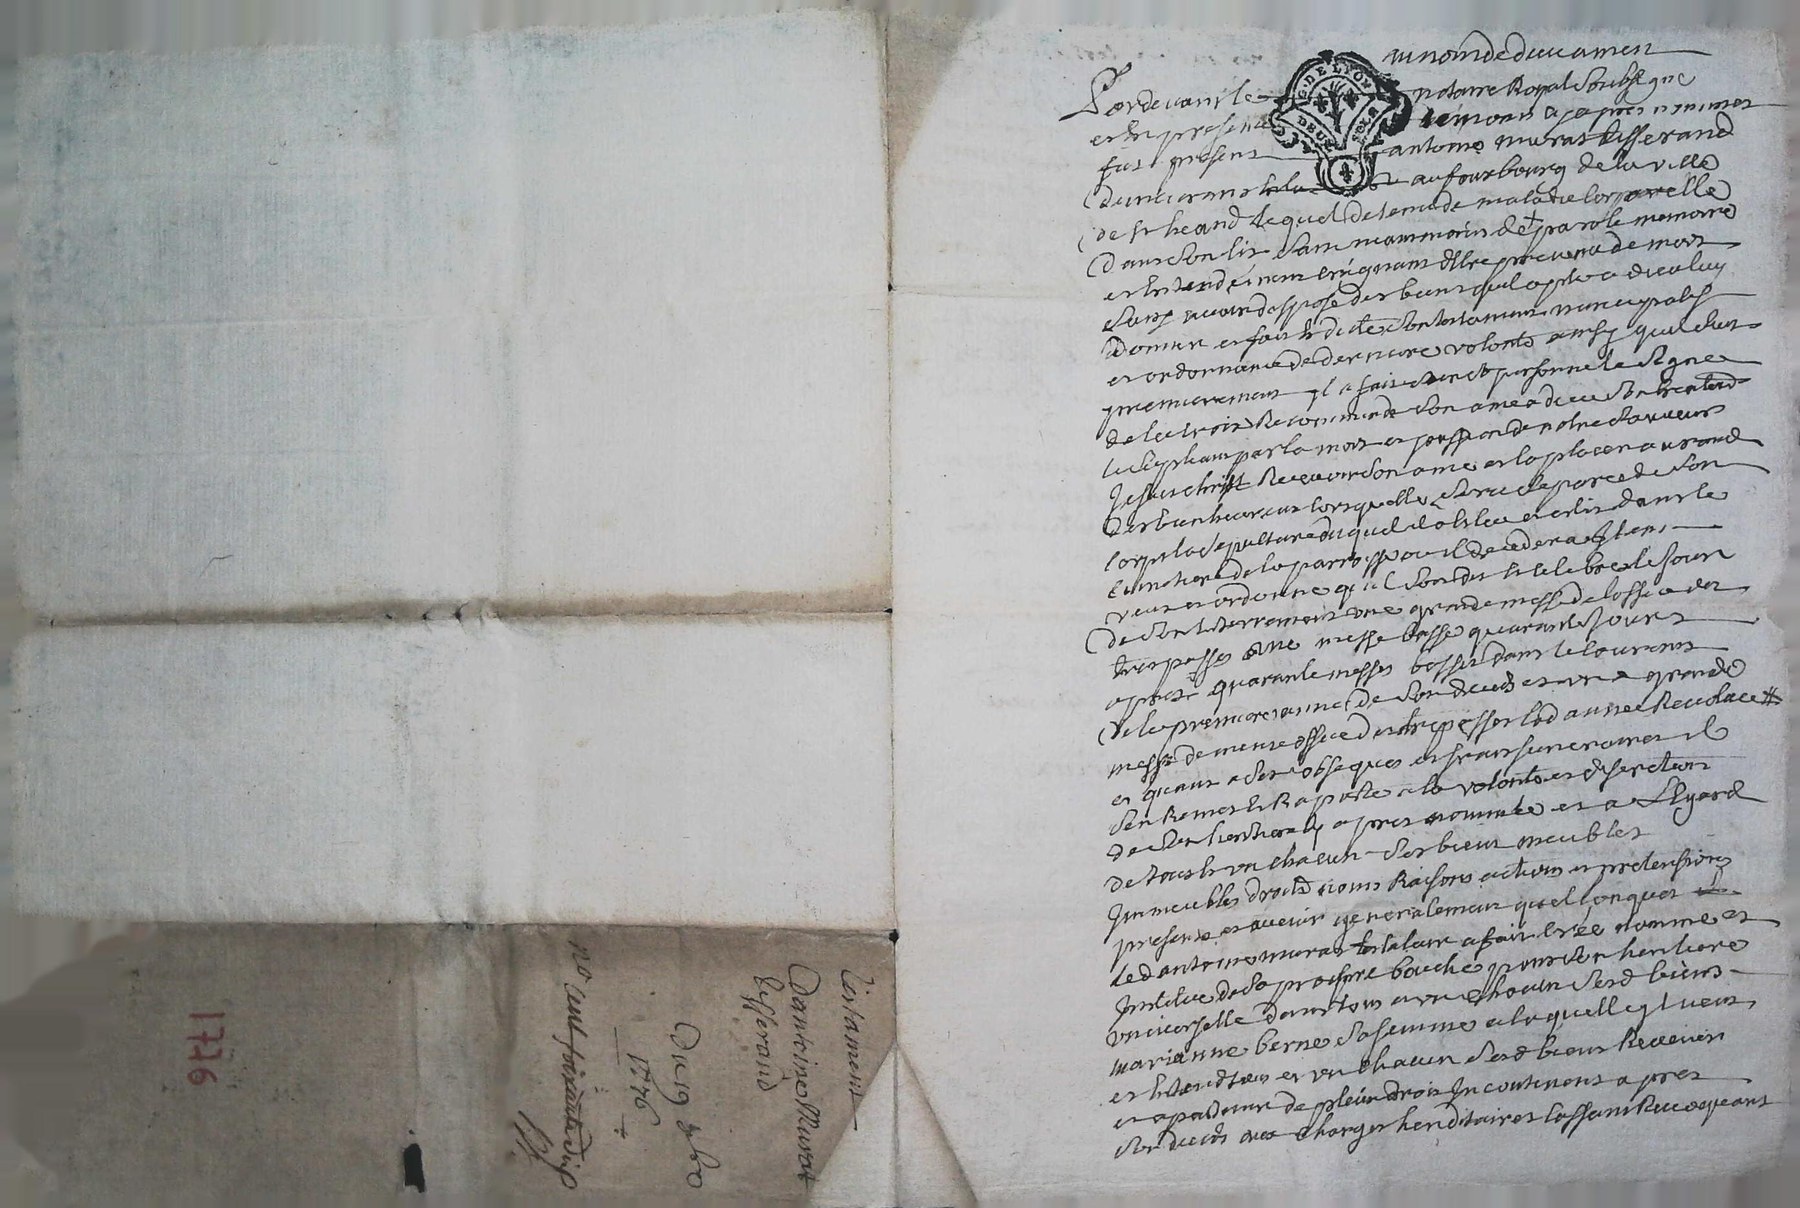 au nom de dieu amen
Pardevant le notaire Royal soubsigné
et en presence temoins cy apres nommes
G. DE LYON
DEUX SOLS
fut present antoine murat tisserand
au fourbourg de la ville
de st heand lequel detenu de maladie corporelle
dans son lit sain neanmoins de parole memoire
et entendement craignant estre prevenu de mort
sans avoir disposé des biens quil a plu a dieu luy
donner a fait et dicté son testament nuncupatif
et ordonnance de derniere volonté ainsy quil suit
premierement il a fait sur sa personne le signe
de la croix Recommande son ame a dieu
le supliant par la mort et passion de notre sauveur
Jesus christ Recevoir son ame et la placer au rand
des bienheureux lorsquelle sera separee de son
corps la sepulture duquel il a esleu et eslit dans le
cimetiere de la parroisse ou il decedera Item
veut et ordonne quil soit dit et celebré le jour
de son enterrement une grande messe de loffice des
trepasses une messe basse quarante jours
apres quarante messes basses dans le courant
de la premiere année de son deces et une grande
messe de meme office des trepasses lad année Revolue
et quant a ses obseques et frais funeraires il
sen Remet et Raporte a la volonté et discretion
de son heritiere cy apres nommée et a Legard
de tous et un chacun ses biens meubles
Immeubles droits noms Raisons actions et pretensions
presents et avenir generalement quelconques
led antoine murat testateur a fait créé nommé et
Institué de sa propre bouche pour son heritiere
universelle dans tous et un chacun sesd biens
marianne berne sa femme a laquelle il veut
et entend tous et un chacun sesd biens Revenir
et apartenir de plein droit Incontinent apres
son deces aux charges hereditaires cassant Revoquant
Testament
Dantoine Murat
tisserand
Du 19 9bre
1776
no cent soixante dix
1776